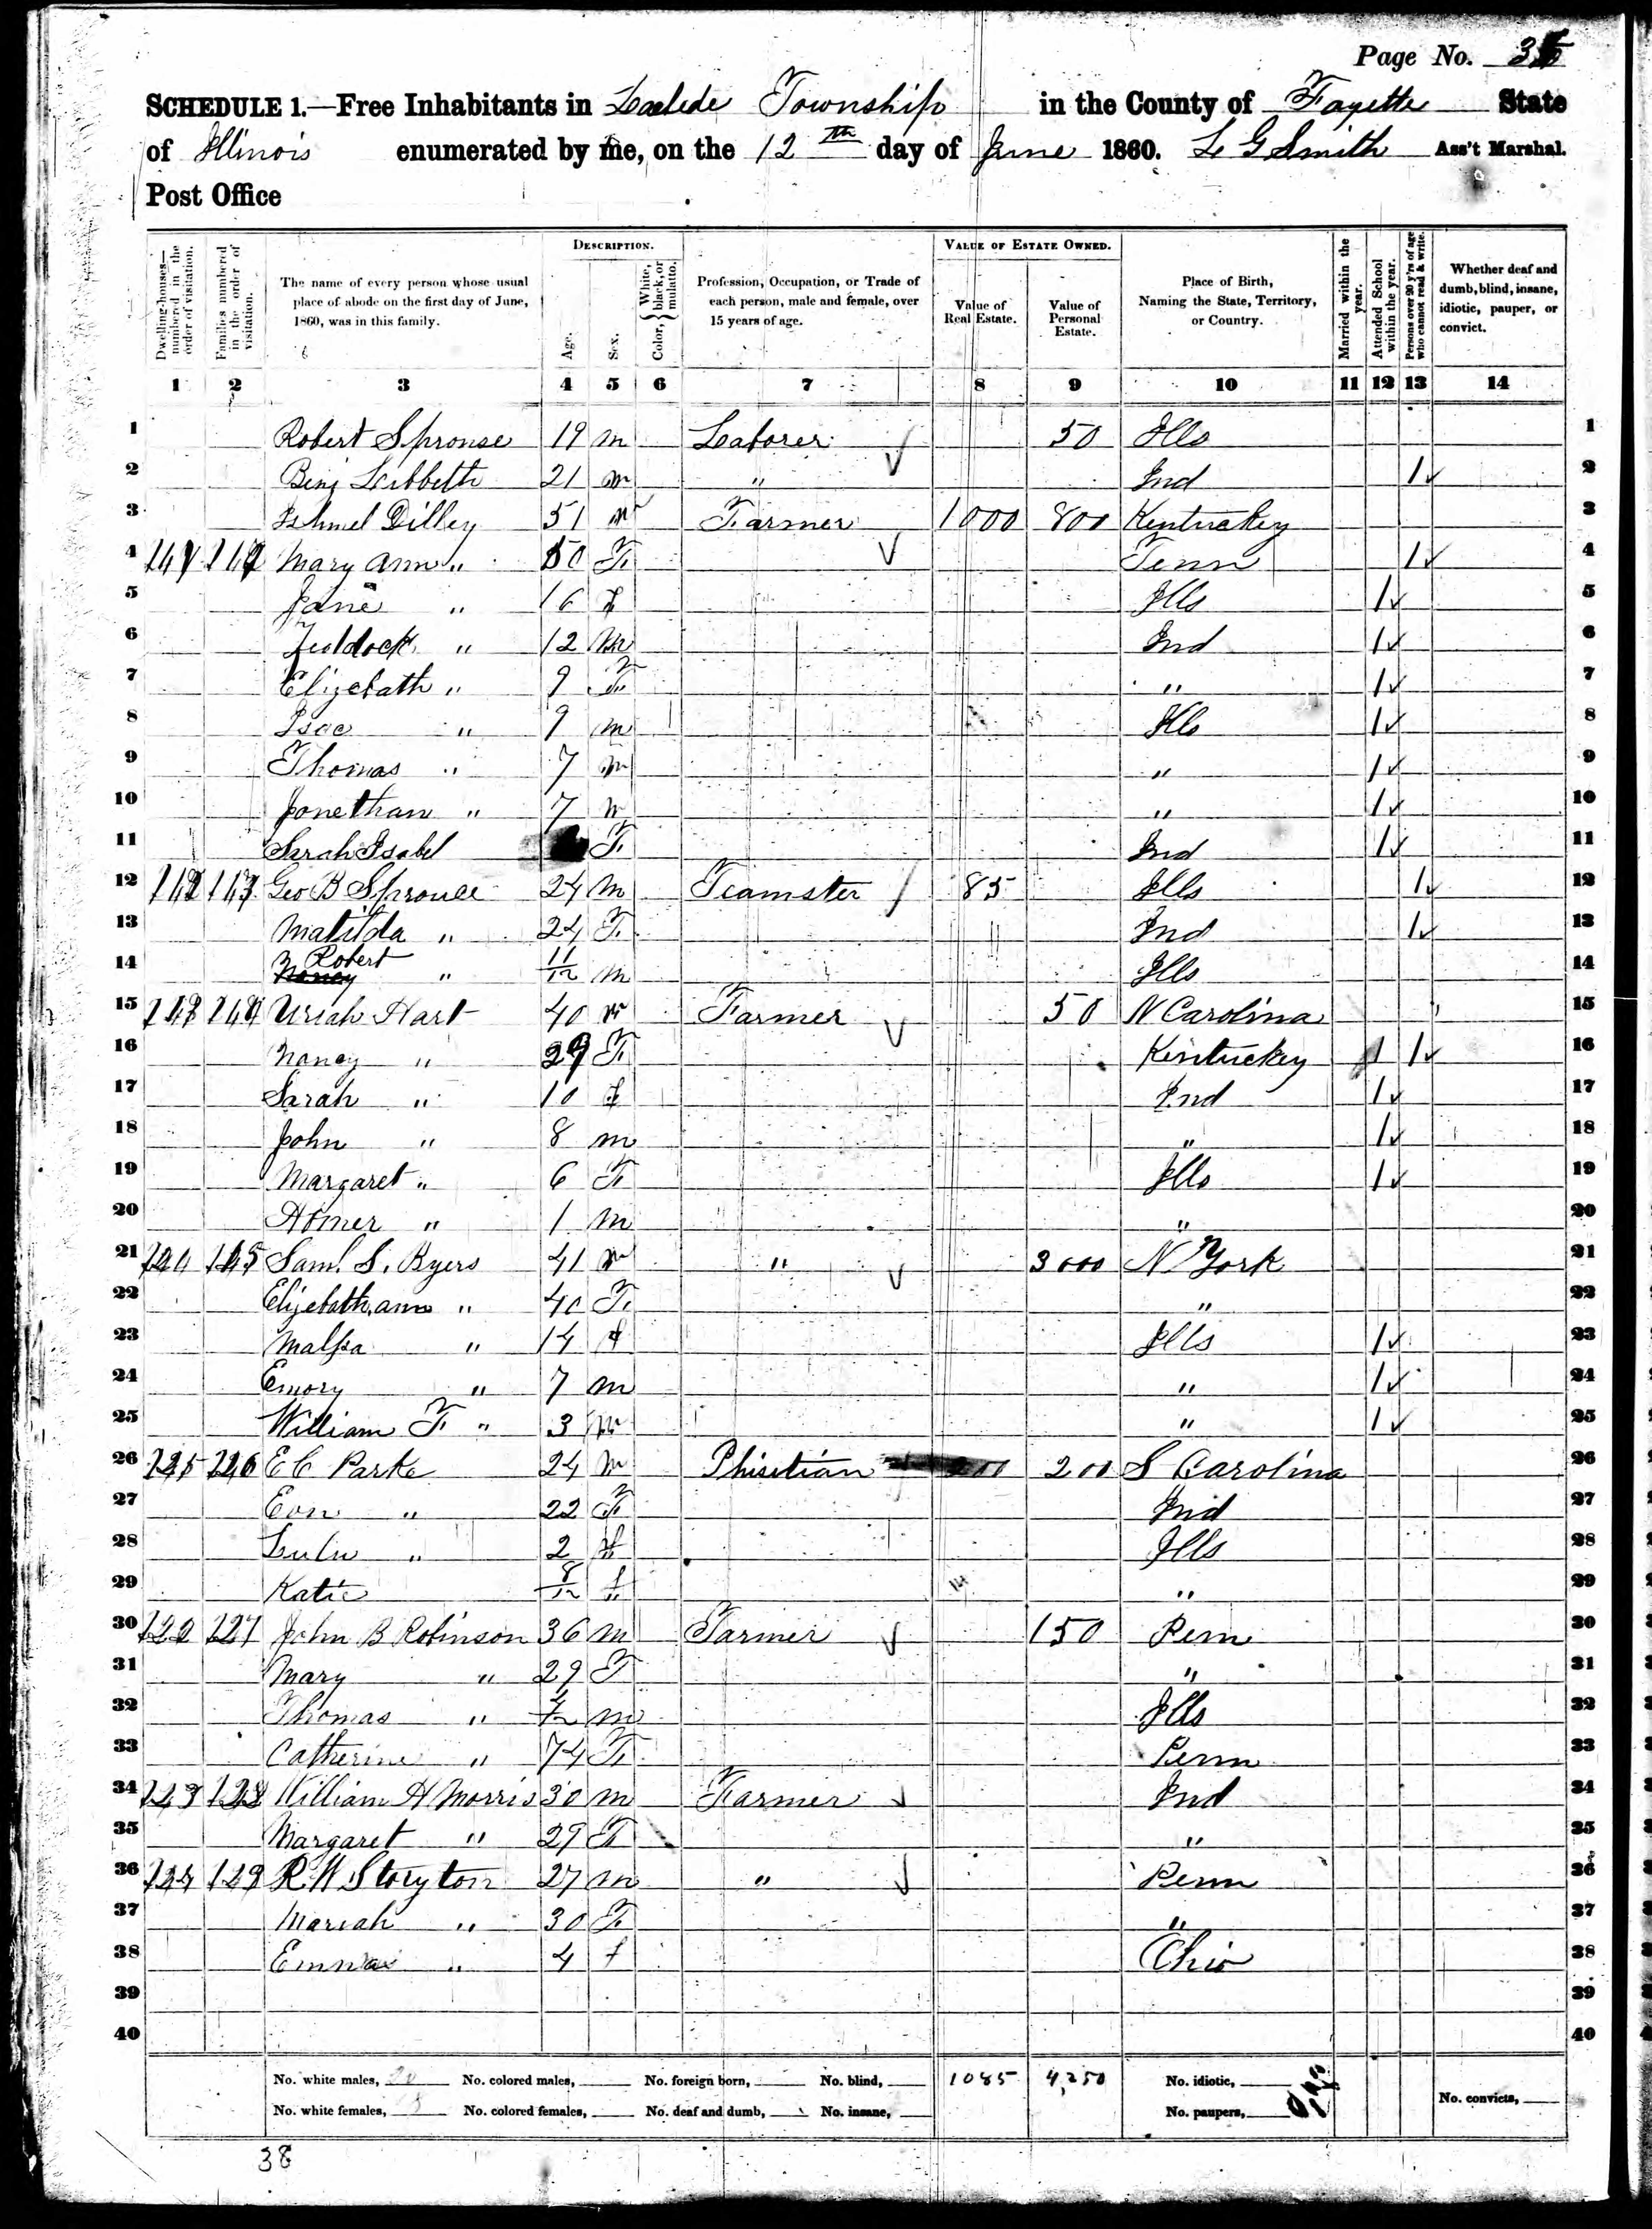 Page No. 35
SCHEDULE 1.—Free Inhabitants in Laclede Township in the County of Fayette State
of Illinois enumerated by me, on the 12th day of June 1860. L G Smith Ass't Marshal.
Post Office
Dwelling-houses—numbered in the order of visitation.
Families numbered in the order of visitation.
The name of every person whose usual place of abode on the first day of June, 1860, was in this family.
DESCRIPTION.
Age.
Sex.
Color, { White, black, or mulatto.
Profession, Occupation, or Trade of each person, male and female, over 15 years of age.
VALUE OF ESTATE OWNED.
Value of Real Estate.
Value of Personal Estate.
Place of Birth, Naming the State, Territory, or Country.
Married within the year.
Attended School within the year.
Persons over 20 y'rs of age who cannot read & write.
Whether deaf and dumb, blind, insane, idiotic, pauper, or convict.
1 2 3 4 5 6 7 8 9 10 11 12 13 14
1 Robert Sprouse 19 m Laborer 50 Ills 1
2 Benj 21 m " Ind 1 2
3 Ishmel Dilley 51 m Farmer 1000 800 Kentucky 3
4 Mary Ann " 50 F Tenn 1 4
5 Jane " 16 f Ills 1 5
6 " 12 m Ind 1 6
7 Elizebath " 9 F " 1 7
8 Isac " 9 m Ills 1 8
9 Thomas " 7 m " 1 9
10 Jonethan " 7 m " 1 10
11 Sarah Isabel F Ind 1 11
12 Geo B Sprouce 24 m Teamster 85 Ills 1 12
13 Matilda " 24 F Ind 1 13
14 Robert " 11/12 m Ills 14
15 Uriah Hart 40 m Farmer 50 N Carolina 15
16 Nancy " 29 F Kentucky 1 1 16
17 Sarah " 10 f Ind 1 17
18 John " 8 m " 1 18
19 Margaret " 6 F Ills 1 19
20 Homer " 1 m " 20
21 Saml S. Byers 41 m " 3000 N York 21
22 Elizebath ann " 40 F " 22
23 " 14 f Ills 1 23
24 Emory " 7 m " 1 24
25 William F " 3 m " 1 25
26 125 126 E C Parke 24 m Phisitian 200 S Carolina 26
27 " 22 F Ind 27
28 Lulu " 2 f Ills 28
29 Katie 8/12 f " 29
30 127 John B Robinson 36 m Farmer 150 Penn 30
31 Mary " 29 F " 31
32 Thomas " m Ills 32
33 Catherine " 74 F Penn 33
34 123 128 William H Morris 30 m Farmer Ind 34
35 Margaret " 29 F " 35
36 124 129 R W Storyton 27 m " Penn 36
37 Mariah " 30 F " 37
38 Emma " 4 f Ohio 38
39 39
40 40
No. white males, 20 No. colored males, No. foreign born, No. blind, 1085 4,250 No. idiotic,
No. white females, No. colored females, No. deaf and dumb, No. insane, No. paupers, No. convicts,
38